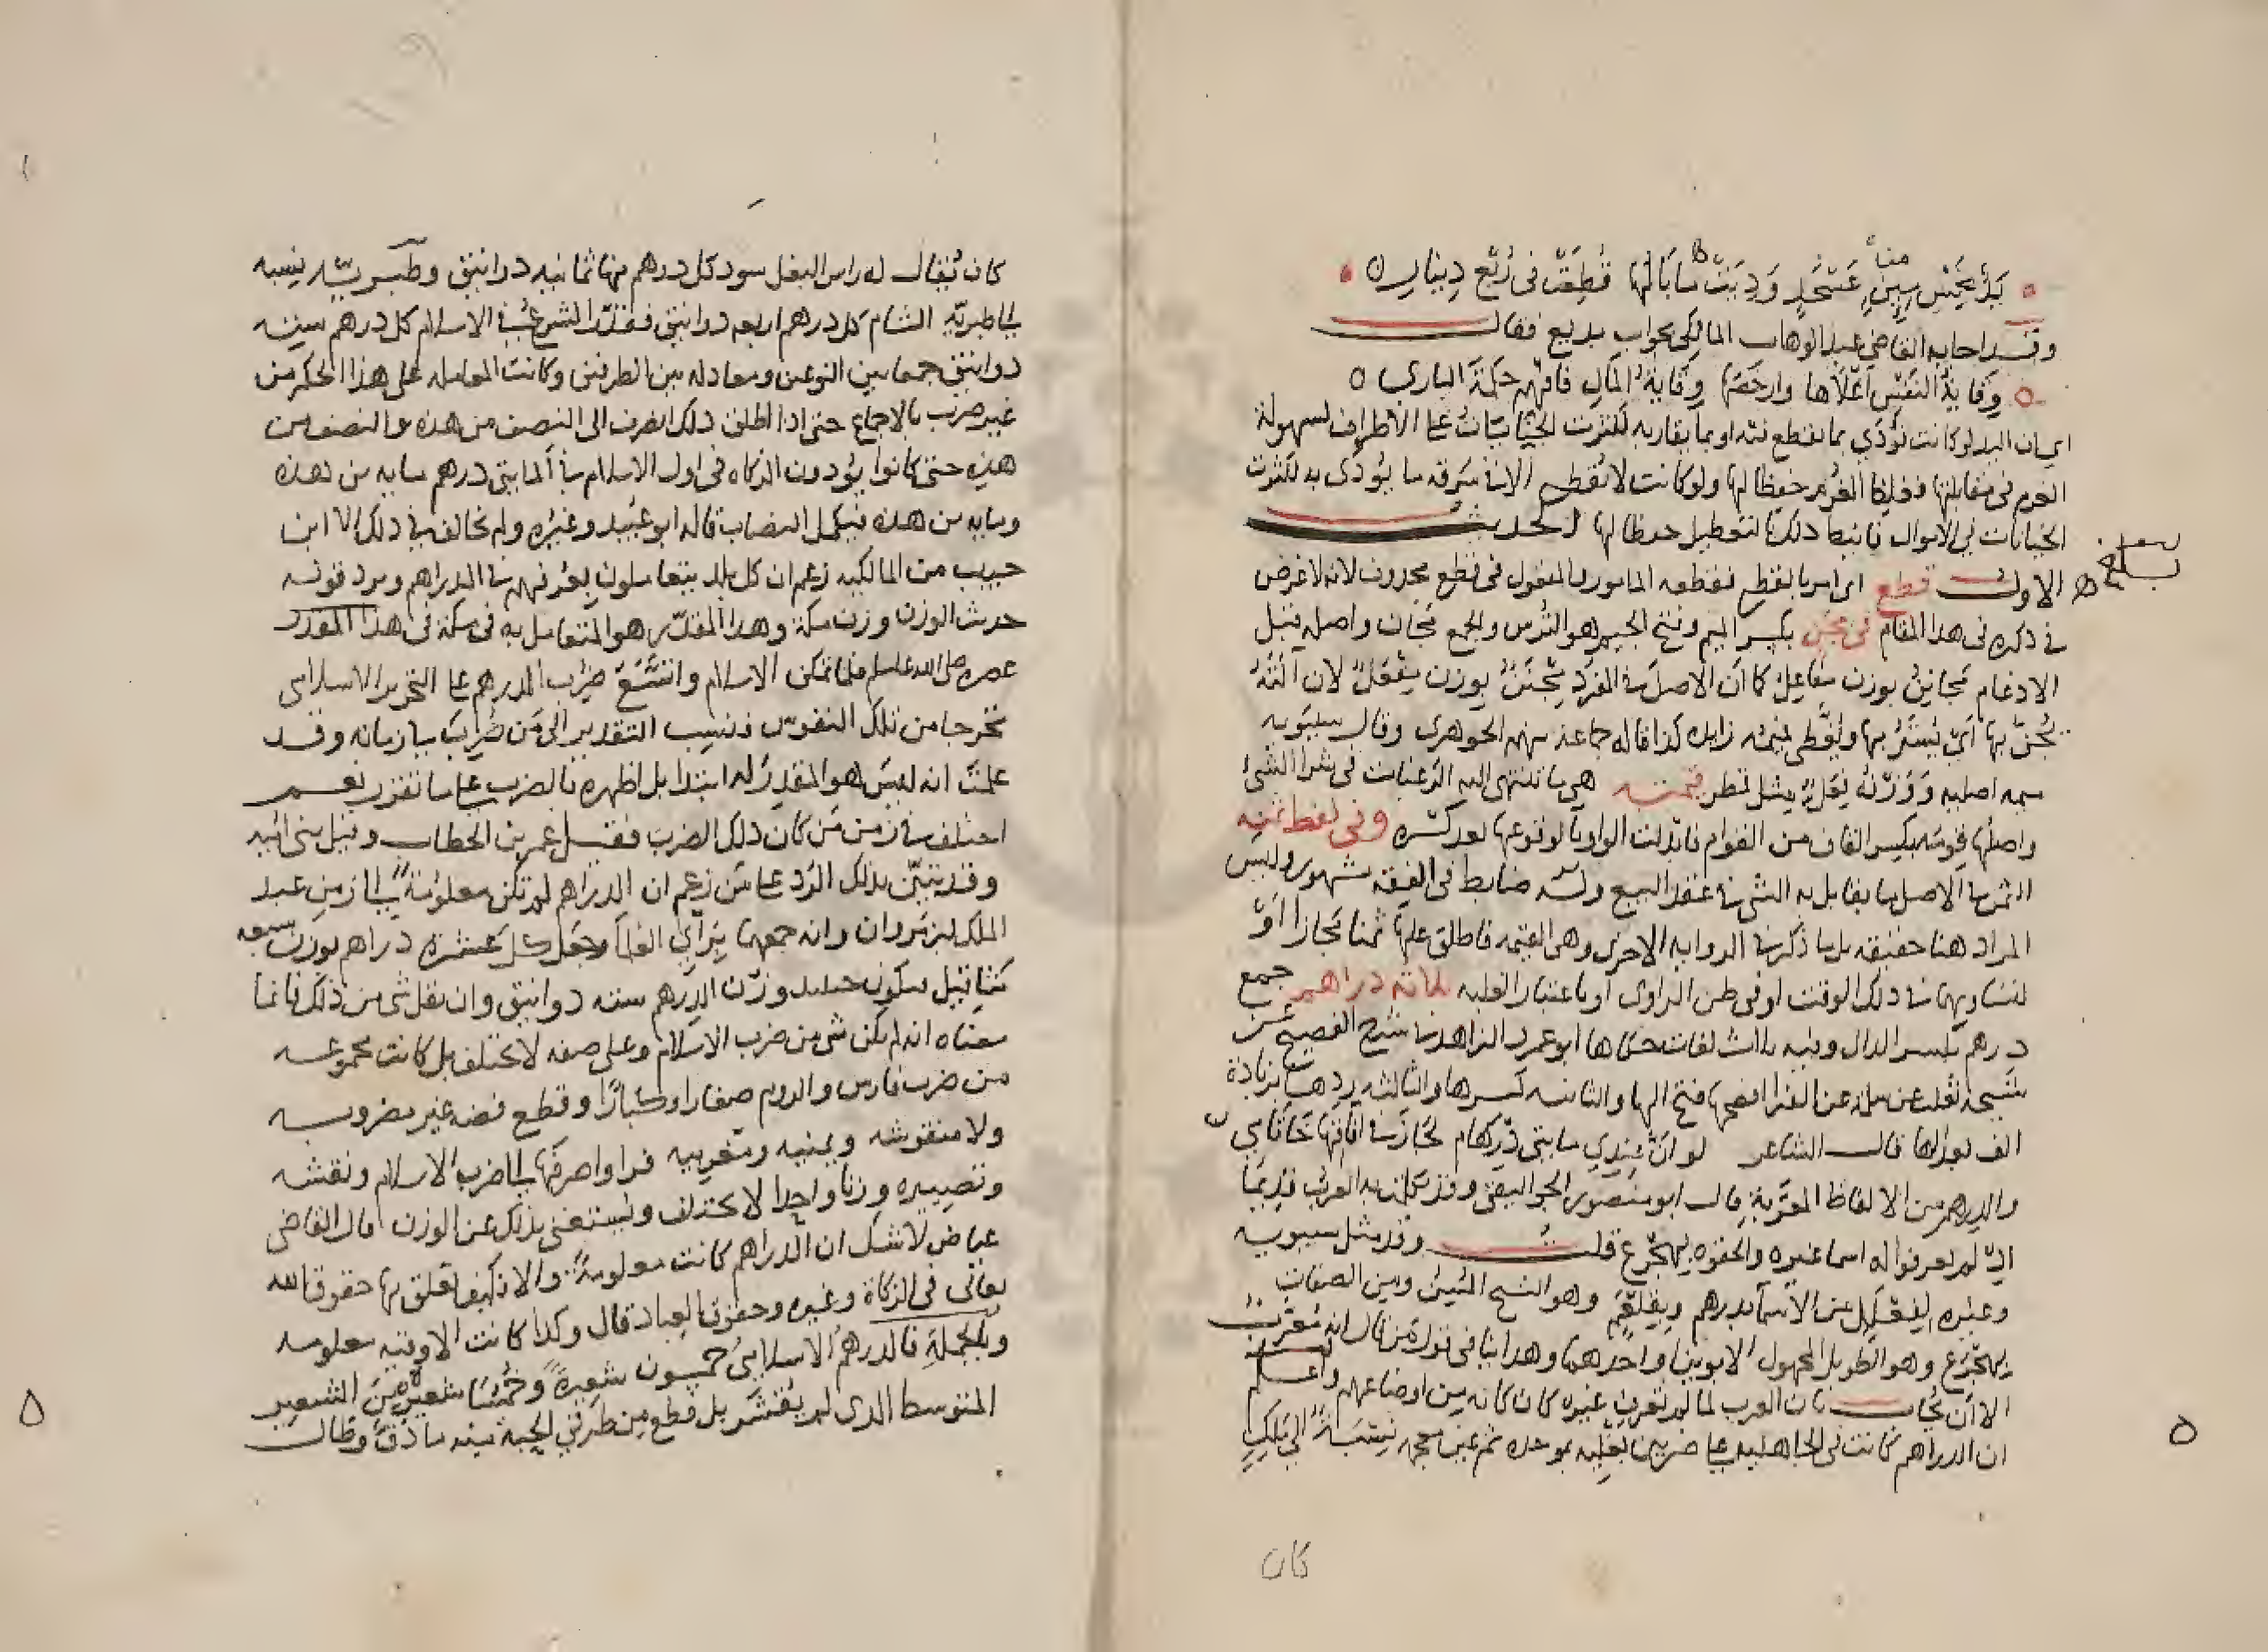 يَدٌ بخَمْسِ مِيءٍ مِنْ عَسْجَدٍ وَدِيَتْ مَا بَالُهَا قُطِعَتْ فى رُبْعِ دِينَارِ
وقد اجابه القاضي عبد الوهاب المالكي بجواب بديع فقال
وِقَايَةُ النَفْسِ اغْلَاهَا وارخَصَهَا وِقَايَةُ المَالِ فَافهَمْ حِكمَةَ الباري
اي ان اليد لو كانت تُؤدَي بما يقطع فيه او بما يقاربه لكثرت الجنايَاتُ على الاطراف لسهولة
الغرم فى مقابلتها فغلظ الغُرم حفظا لها ولو كانت لا تُقطع الا فى سَرقه ما يُؤدَى به لكثرت
الجنايات على الاموال
الاول قطع اى امر بالقطع فقطعه المامور والمفعول فى قطع محذوف لانه لا غرض
في ذكره فى هذا المقام فى مِجَن بكسر الميم وفتح الجيم هو التُرس والجمع مَجَان واصله قبل
الادغام مَجَانِن بوزن مفاعِل كما أن الاصل في الفرد مِجْنَن بوزن مِفْعَل لان
يُجَنّ بها اي يُسْتَرُ بها ويُغَطى فميمه زايده كذا قاله جماعة منهم الجوهرى وقال سيبويه
ميمه اصليه وَوَزْنُه فِعَلّ مثل قمطر قيمته هي ما تنتهى اليه الرَغبات فى شرا الشئ
واصلها قِومَه بكسر القاف من القوام فابدلت الواو يا لوقوعها بعد كسره وفى لفظ ثمنه
الثمن في الاصل ما يقابل به الشى في عقد البيع وله ضابط فى الفقه مشهور وليس
المراد هنا حقيقه بل ما ذكر في الروايه الاخرى وهى القيمه فاطلق عليها ثمنا مَجازا اوْ
لتساويهما في ذلك الوقت او فى ظن الراوى او باعتبار الغلبه ثلاثه دراهم جمع
درهم بكسر الدال وفيه ثلاث لغات حكاها ابو عمر الزاهد في شرح الفصيح عن
شيخه ثعلب عن سلمه عن الفرا افصحها فتح الها والثانيه كسرها والثالثه دِرهام بزيادة
الف بعد الها قال الشاعر لو انّ عِندي مايتى دِرهَام لجَازَ في افاقها خَاتَامي
والدرهم من الالفاظ المعَرَّبة قال ابو منصور الجواليقى وقد تكلمت به العرب قديمًا
اذ لم يعرفوا له اسما غيره والحقوه بهِجْرَع قلت وقد مثل سيبويه
وغيره لفِعْلَل من الاسما بدرهم وبقِلْعَم وهو الشيخ المُسِن ومن الصفات
بهِجْرَع وهو الطويل
الا أن يُجاب بان العرب لما لم تعرف غيره كان كانه من اوضاعهم واعلم
ان الدراهم كانت فى الجاهليه على ضربين بَغْلِيَّه بموحده ثم غين معجمه نِسْبَةً الى مَلِكٍ
كان
كان يُقال له راس البغل سود كل درهم منها ثمانيه دوانيق وطَبَريّه نسبه
الى طبريّه الشام كل درهم اربعه دوانيق فقدّر الشرع في الاسلام كل درهم سته
دوانيق جمعا بين النوعين ومعادله بين الطرفين وكانت المعامله على هذا الحكم من
غير ضرب بالاجماع حتى اذا اطلق ذلك انصرف الى النصف من هذه والنصف من
هذه حتى كانوا يُؤدون الزكاه فى اول الاسلام من المايتى درهم مايه من هذه
ومايه من هذه فيكمل النصاب قاله ابو عُبَيد وغيره ولم يخالف في ذلك الا ابن
حبيب من المالكيه زعم ان كل بلد يتعاملون بعُرفهم في الدراهم ويرد قوله
حديث الوزن وزن مكة وهذا المقدّر هو المتعامل به فى مكة فى هذا المقدر
عصره صلى الله عليه وسلم فلما تمكن الاسلام واتسَعَ ضُرِب الدرهم على التحرير الاسلامي
تخرجا من تلك النقوش فنسب التقدير الى مَن ضُرِبَ في زمانه وقد
علمتَ انه ليسَ هو المقدِرُ له ابتدا بل اظهره بالضرب على ما تقرر نعم
اختلف في زمن مَن كان ذلك الضرب فقيل عمر بن الخطاب وقيل بنى اميه
وقد تبيّن بذلك الرَد على مَن زعم ان الدراهم لم تكن معلومة الى زمن عبد
الملك بن مَروان وانه جمعها بِرَأي العُلَمآ وجَعل كل عشره دراهم بوزن سبعه
مثاقيل فيكون حينيد وزن الدرهم سته دوانيق وان نقل شى من ذلك فانما
معناه انه لم يكن شى من ضرب الاسلام وعلى صفه لا تختلف بل كانت مجموعه
من ضرب فارس والروم صغارا وكبَارًا وقطع فضه غير مضروبه
ولا منقوشه ويمنيه ومغربيه فراوا صرفها الى ضرب الاسلام ونقشه
وتصييره وزنا واحِدا لا يختلف ويُستغنى بذلك عن الوزن قال القاضى
عياض لا شك ان الدراهم كانت معلومة والا فكيف تعلق بها حقوق الله
تعالى فى الزكاة وغيره وحقوق العباد قال وكذا كانت الاوقيه معلومه
وبالجملةِ فالدرهمُ الاسلاميُ خمسون شعيرةً وخُمُسَا شعيره مِنَ الشعير
المتوسط الذى لم يُقشَر بل قطع مِن طرفَي الحبة منه ما دَقّ وطال